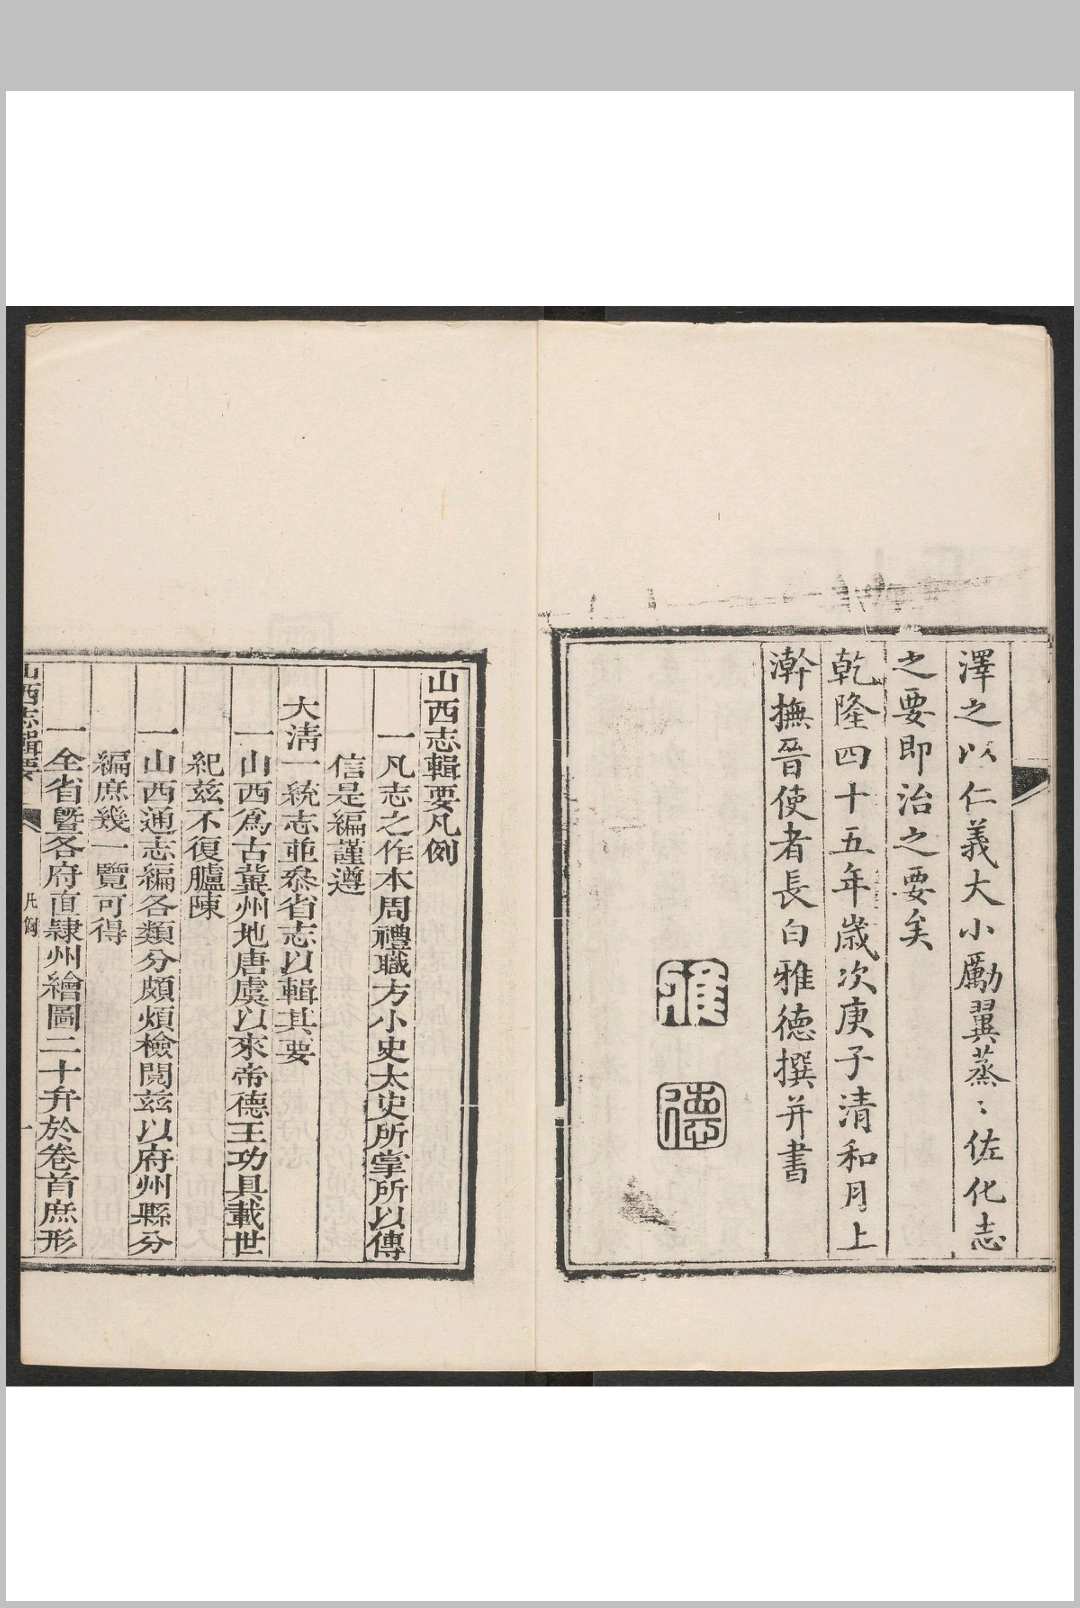 澤之以仁義大小勵翼蒸〻佐化志
之要即治之要矣
乾隆四十五年歲次庚子清和月上
澣撫晉使者長白雅德撰并書
雅
德
山西志輯要凡例
一凡志之作本周禮職方小史太史所掌所以傳
信是編謹遵
大清一統志並叅省志以輯其要
一山西爲古冀州地唐虞以來帝德王功具載世
紀茲不復臚陳
一山西通志編各類分頗煩檢閱茲以府州縣分
編庶幾一覽可得
一全省暨各府直隸州繪圖二十弁於卷首庶形
山西志輯要
凡例
一